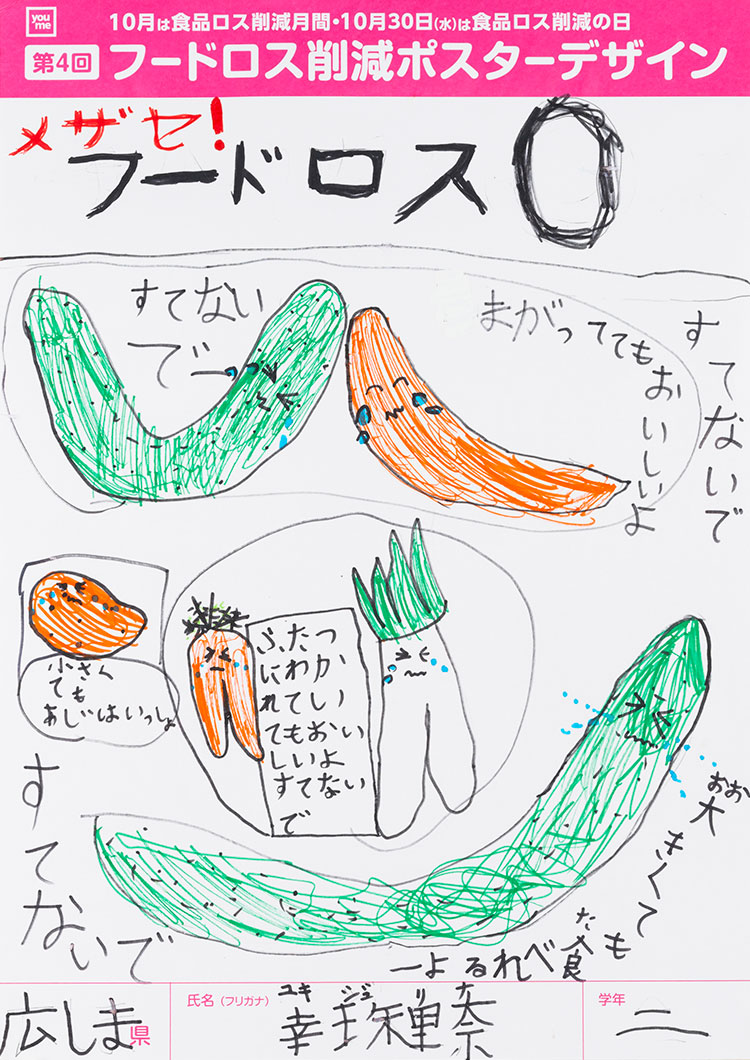 you me
10月は食品ロス削減月間・10月30日(水)は食品ロス削減の日
第4回 フードロス削減ポスターデザイン
メザセ!
フードロス0
すてない
でー
まがっててもおいしいよ
すてないで
小さく
ても
あじはいっしょ
ふたつ
にわか
れてい
てもおい
しいよ
すてない
で
すてないで
おお
大きくても食べれるよー
た
広しま県
氏名(フリガナ)
ユキ ジュ リ ナ
幸 珠理奈
学年
二